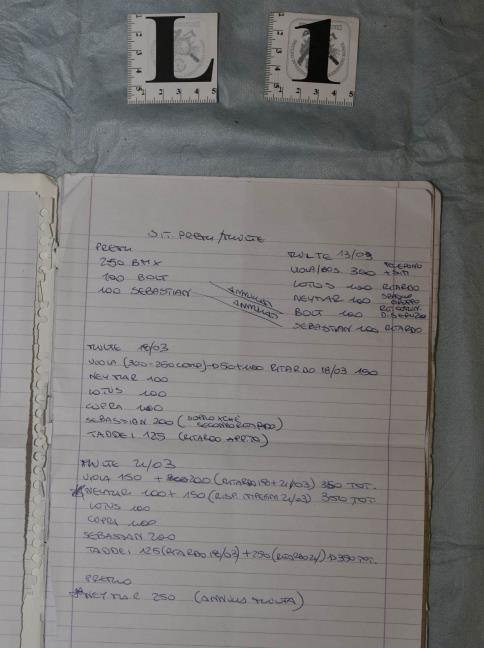 L 1
SIT. PREMI/MULTE
PREMI
250 BMX
100 BOLT
100 SEBASTIAN
ANNULLATO
ANNULLATO
MULTE 13/03
VIOLA/BOS 300 TELEFONO + SIM
LOTUS 100 RITARDO
NEYMAR 100 GRUPPO
BOLT 100
SEBASTIAN 100 RITARDO
MULTE 18/03
VIOLA (300-250 COMP)→50+100 RITARDO 18/03 150
NEYMAR 100
LOTUS 100
COPRA 100
SEBASTIAN 200 (DOPPIO XCHÈ SECONDO RITARDO)
TADDEI 125 (RITARDO APRITO)
MULTE 21/03
VIOLA 150 + 200 (RITARDO 18+21/03) 350 TOT.
NEYMAR 100 + 150 (RISP. 21/03) 350 TOT.
LOTUS 100
COPRA 100
SEBASTIAN 200
TADDEI 125 (RITARDO 18/03) + 250 (RITARDO 21/)→350 TOT.
PREMIO
NEYMAR 250 (ANNULLA MULTA)